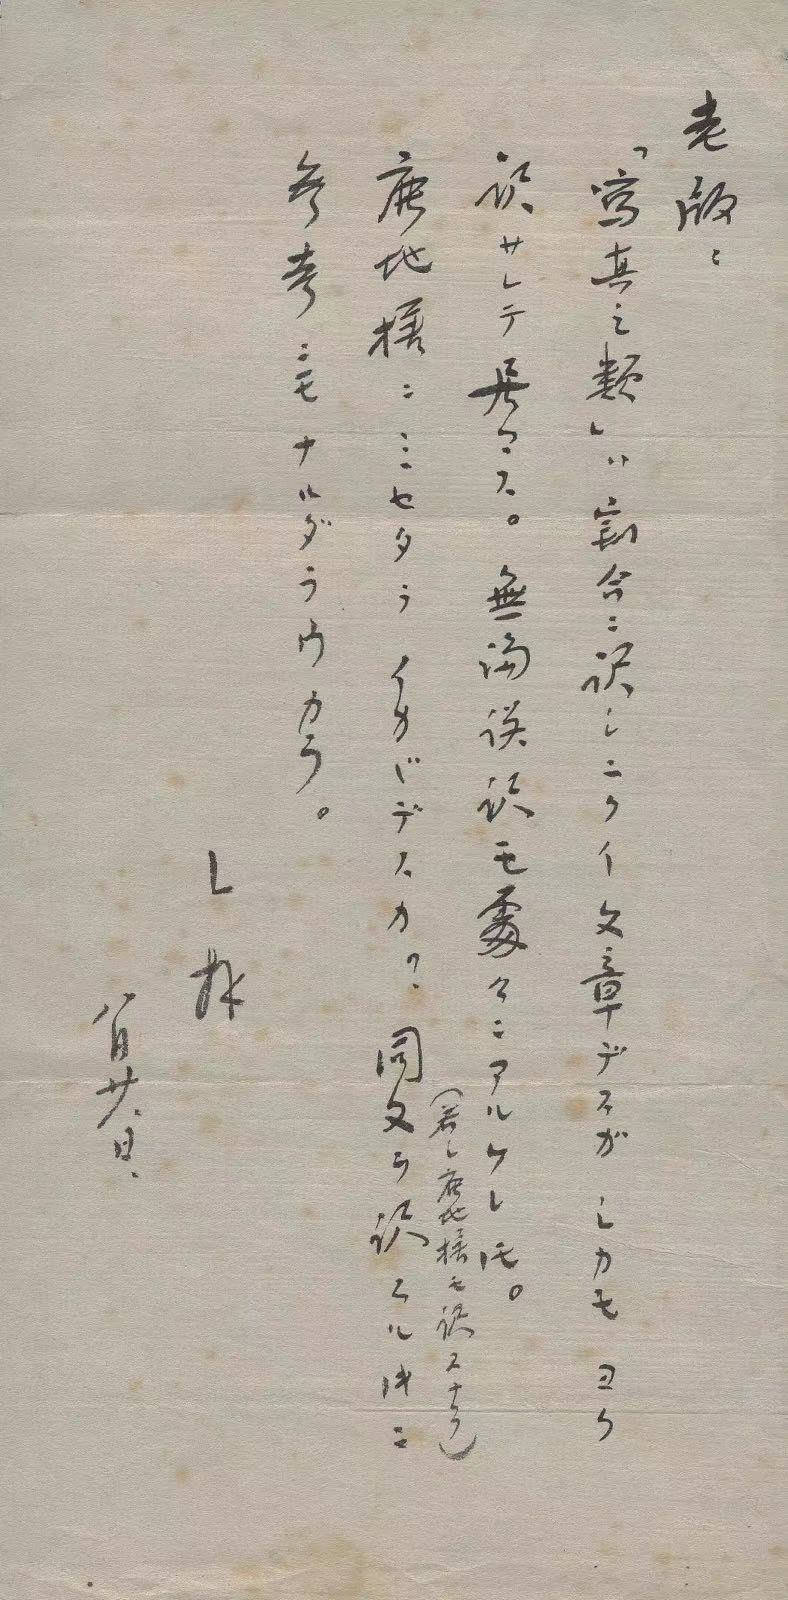 老版ニ
「寫真之類」ハ割合ニ訳シニクイ文章デスガ シカモヨク
訳サレテ居マス。無論誤訳モ處々ニアルケレ𪜈。
(若シ鹿地様モ訳スナラ)
鹿地様ニミセタラ イカヾデスカ？ 同文ヲ訳スル時ニ
参考ニモナルダラウカラ。
L 拜
八月廿日